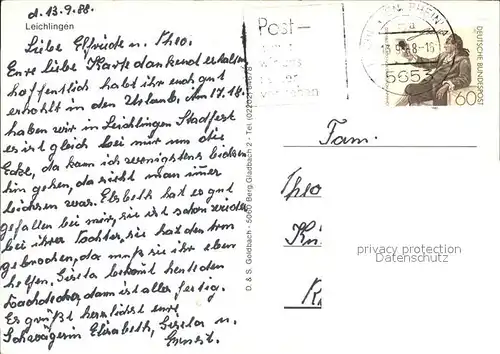 d. 13.9.88.
Leichlingen
Liebe Elfriede u. Theo.
Eure liebe Karte dankend erhalten
hoffentlich habt ihr euch gut
erholt in den Urlaub. Am 17.18.
haben wir in Leichlingen Stadtfest
es ist gleich bei mir um die
Ecke, da kann ich wenigstens bischen
hin gehen, da sieht man immer
war. Elsbeth hat es gut
gefallen bei mir, sie ist schon wieder
bei ihrer Tochter, sie hat den Arm
gebrochen, da muß sie ihr eben
helfen, Gisela bekomt heute den
Dachdecker, dann ist alles fertig.
Es grüßt herzlichst eure
Schwägerin Elisabeth, Gisela u.
Ernst.
D. & S. Goldbach - 5060 Berg. Gladbach 2 - Tel. (02202)
Post-
13.9.88-16
5653
DEUTSCHE BUNDESPOST
60
Fam.
Theo
privacy protection
Datenschutz